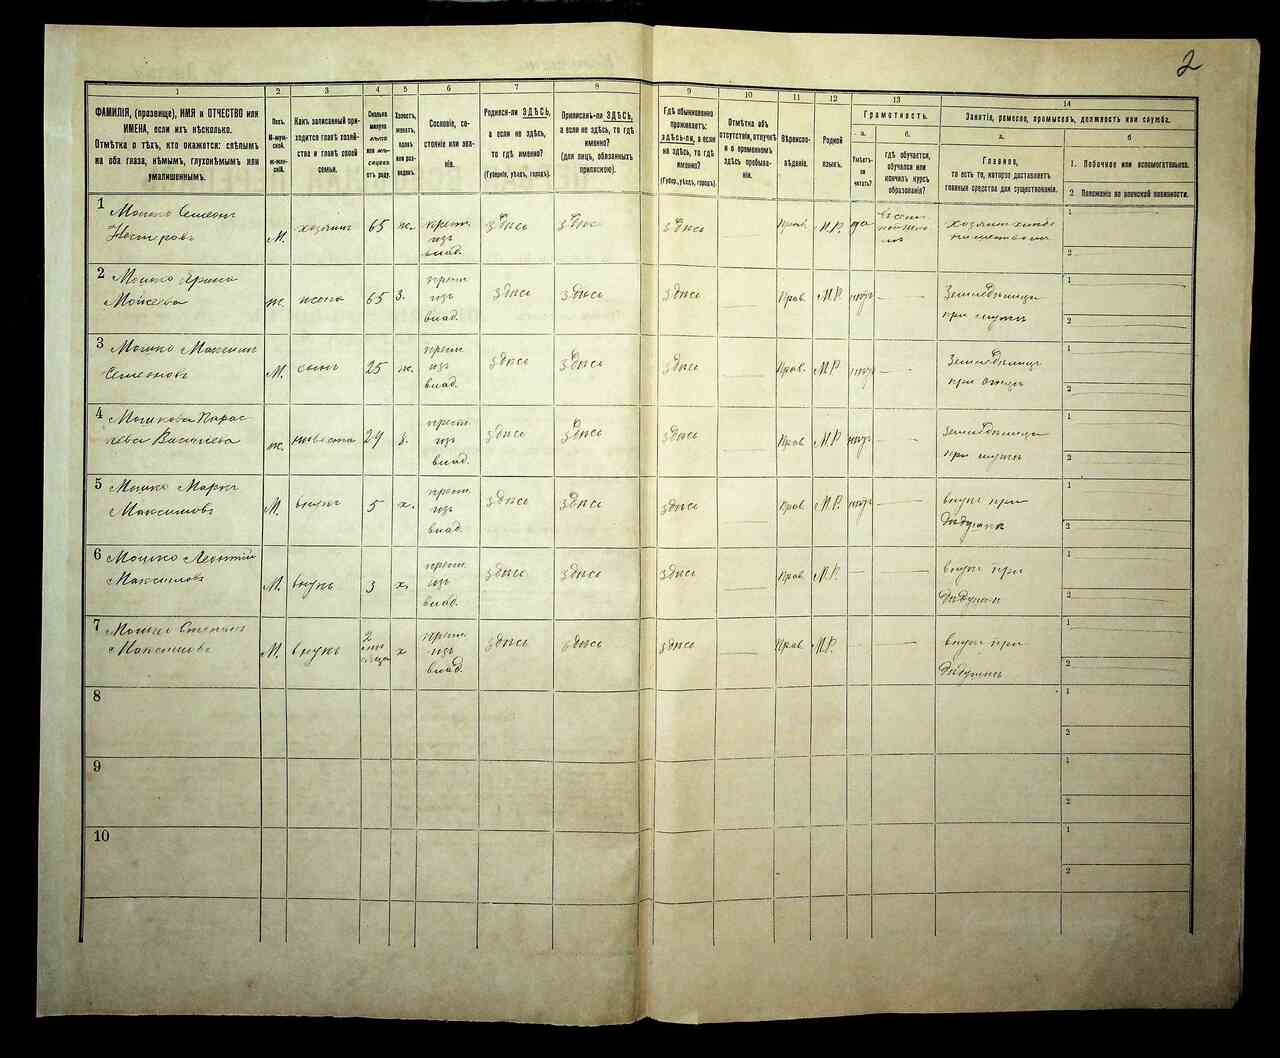 2
1
2
3
4
5
6
7
8
9
10
11
12
13
14
ФАМИЛІЯ, (прозвище), ИМЯ и ОТЧЕСТВО или
ИМЕНА, если ихъ нѣсколько.
Отмѣтка о тѣхъ, кто окажется: слѣпымъ
на оба глаза, нѣмымъ, глухонѣмымъ или
умалишеннымъ.
Полъ.
М-муж-
ской.
Ж-жен-
скій.
Какъ записанный при-
ходится главѣ хозяй-
ства и главѣ своей
семьи.
Сколько
минуло
лѣтъ
или мѣ-
сяцевъ
отъ роду.
Холостъ,
женатъ,
вдовъ
или раз-
веденъ.
Сословіе, со-
стояніе или зва-
ніе.
Родился-ли ЗДѢСЬ,
а если не здѣсь,
то гдѣ именно?
(Губернія, уѣздъ, городъ).
Приписанъ-ли ЗДѢСЬ,
а если не здѣсь, то гдѣ
именно?
(для лицъ, обязанныхъ
припискою).
Гдѣ обыкновенно
проживаетъ:
здѣсь-ли, а если
не здѣсь, то гдѣ
именно?
(Губер., уѣздъ, городъ).
Отмѣтка объ
отсутствіи, отлучкѣ
и о временномъ
здѣсь пребыва-
ніи.
Вѣроиспо-
вѣданіе.
Родной
языкъ.
Грамотность.
а.
Умѣетъ-
ли
читать?
б.
гдѣ обучается,
обучался или
кончилъ курсъ
образованія?
Занятія, ремесло, промыселъ, должность или служба.
а.
Главное,
то есть то, которое доставляетъ
главныя средства для существованія.
б
1. Побочное или вспомогательное.
2. Положеніе по воинской повинности.
1 Мошко Семеонъ
Несторовъ
М. хозяинъ 65 ж. крест.
изъ
влад. здѣсь здѣсь здѣсь Прав. М.Р. да
хозяинъ хлѣбо
1
2
2 Мошко Ирина
Моисеева
ж. жена 65 з. крест.
изъ
влад. здѣсь здѣсь здѣсь Прав. М.Р. нѣтъ
Земледѣлица
при мужѣ
1
2
3 Мошко Максимъ
Семеоновъ
М. сынъ 25 ж. крест.
изъ
влад. здѣсь здѣсь здѣсь Прав. М.Р. нѣтъ
Земледѣлецъ
при отцѣ
1
2
4 Мошкова Парас-
кева Василіева
ж. невѣста 24 з. крест.
изъ
влад. здѣсь здѣсь здѣсь Прав. М.Р. нѣтъ
Земледѣлица
при мужѣ
1
2
5 Мошко Маркъ
Максимовъ
М. внукъ 5 х. крест.
изъ
влад. здѣсь здѣсь здѣсь Прав. М.Р. нѣтъ
внукъ при
дѣдушкѣ
1
2
6 Мошко Леонтій
Максимовъ
М. внукъ 3 х. крест.
изъ
влад. здѣсь здѣсь здѣсь Прав. М.Р.
внукъ при
дѣдушкѣ
1
2
7 Мошко Степанъ
Максимовъ
М. внукъ 2
мѣ
сяца х крест.
изъ
влад. здѣсь здѣсь здѣсь Прав. М.Р.
внукъ при
дѣдушкѣ
1
2
8
1
2
9
1
2
10
1
2